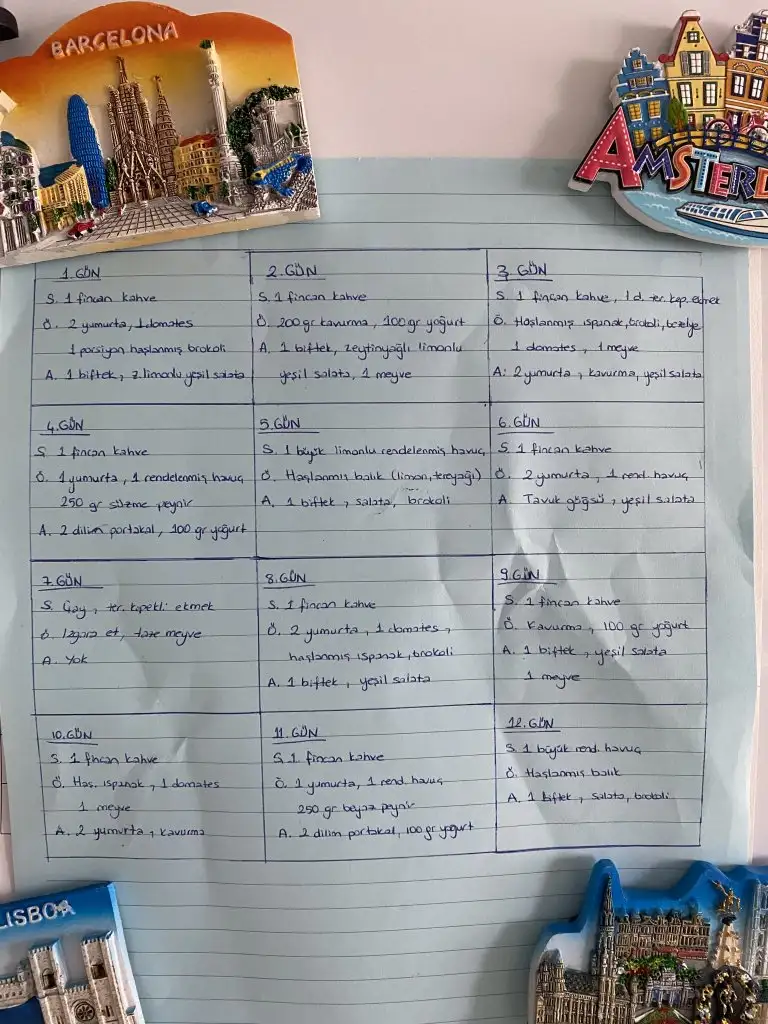 BARCELONA
AMSTERD
1. GÜN
S. 1 fincan kahve
Ö. 2 yumurta, 1 domates
1 porsiyon haşlanmış brokoli
A. 1 biftek, z. limonlu yeşil salata
2. GÜN
S. 1 fincan kahve
Ö. 200 gr kavurma, 100 gr yoğurt
A. 1 biftek, zeytinyağlı limonlu
yeşil salata, 1 meyve
3. GÜN
S. 1 fincan kahve, 1 d. ter. kep. ekmek
Ö. Haşlanmış ıspanak, brokoli, bezelye
1 domates, 1 meyve
A: 2 yumurta, kavurma, yeşil salata
4. GÜN
S. 1 fincan kahve
Ö. 1 yumurta, 1 rendelenmiş havuç
250 gr süzme peynir
A. 2 dilim portakal, 100 gr yoğurt
5. GÜN
S. 1 büyük limonlu rendelenmiş havuç
Ö. Haşlanmış balık (limon, tereyağı)
A. 1 biftek, salata, brokoli
6. GÜN
S. 1 fincan kahve
Ö. 2 yumurta, 1 rend. havuç
A. Tavuk göğsü, yeşil salata
7. GÜN
S. Çay, ter. kepekli ekmek
Ö. Izgara et, taze meyve
A. Yok
8. GÜN
S. 1 fincan kahve
Ö. 2 yumurta, 1 domates,
haşlanmış ıspanak, brokoli
A. 1 biftek, yeşil salata
9. GÜN
S. 1 fincan kahve
Ö. Kavurma, 100 gr yoğurt
A. 1 biftek, yeşil salata
1 meyve
10. GÜN
S. 1 fincan kahve
Ö. Haş. ıspanak, 1 domates
1 meyve
A. 2 yumurta, kavurma
11. GÜN
S. 1 fincan kahve
Ö. 1 yumurta, 1 rend. havuç
250 gr beyaz peynir
A. 2 dilim portakal, 100 gr yoğurt
12. GÜN
S. 1 büyük rend. havuç
Ö. Haşlanmış balık
A. 1 biftek, salata, brokoli
LISBOA